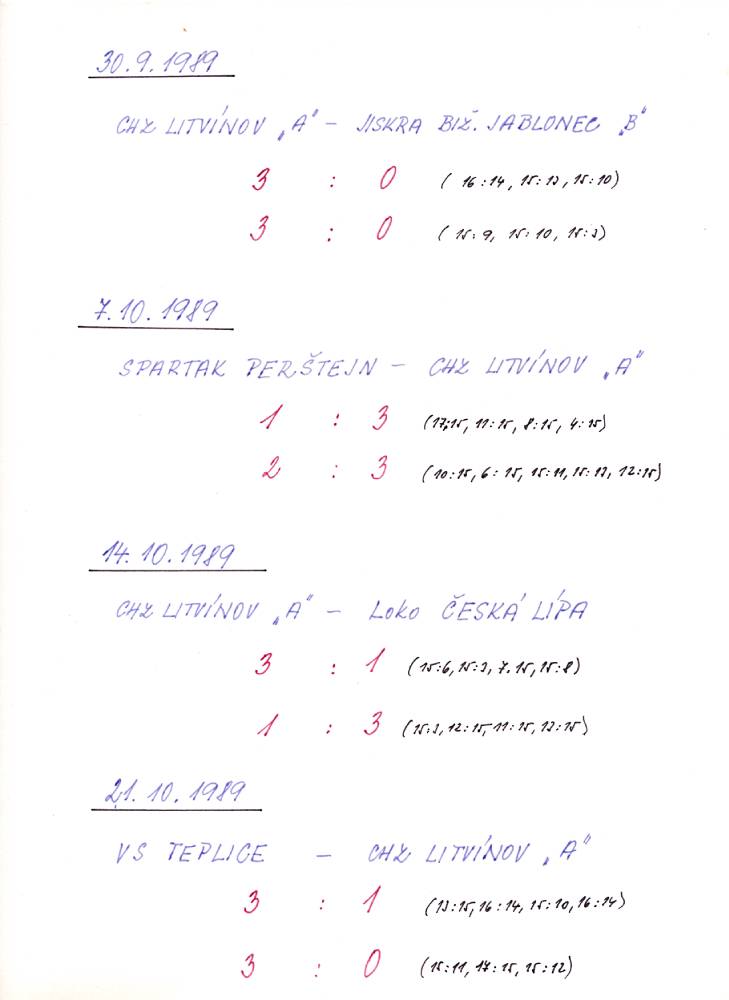 30.9.1989
CHZ LITVÍNOV „A“ – JISKRA BIŽ. JABLONEC „B“
3 : 0 (16:14, 15:13, 15:10)
3 : 0 (15:9, 15:10, 15:3)
7.10.1989
SPARTAK PERŠTEJN – CHZ LITVÍNOV „A“
1 : 3 (17:15, 11:15, 8:15, 4:15)
2 : 3 (10:15, 6:15, 15:11, 15:13, 12:15)
14.10.1989
CHZ LITVÍNOV „A“ – LOKO ČESKÁ LÍPA
3 : 1 (15:6, 15:3, 7.15, 15:8)
1 : 3 (15:3, 12:15, 11:15, 13:15)
21.10.1989
VS TEPLICE – CHZ LITVÍNOV „A“
3 : 1 (13:15, 16:14, 15:10, 16:14)
3 : 0 (15:11, 17:15, 15:12)